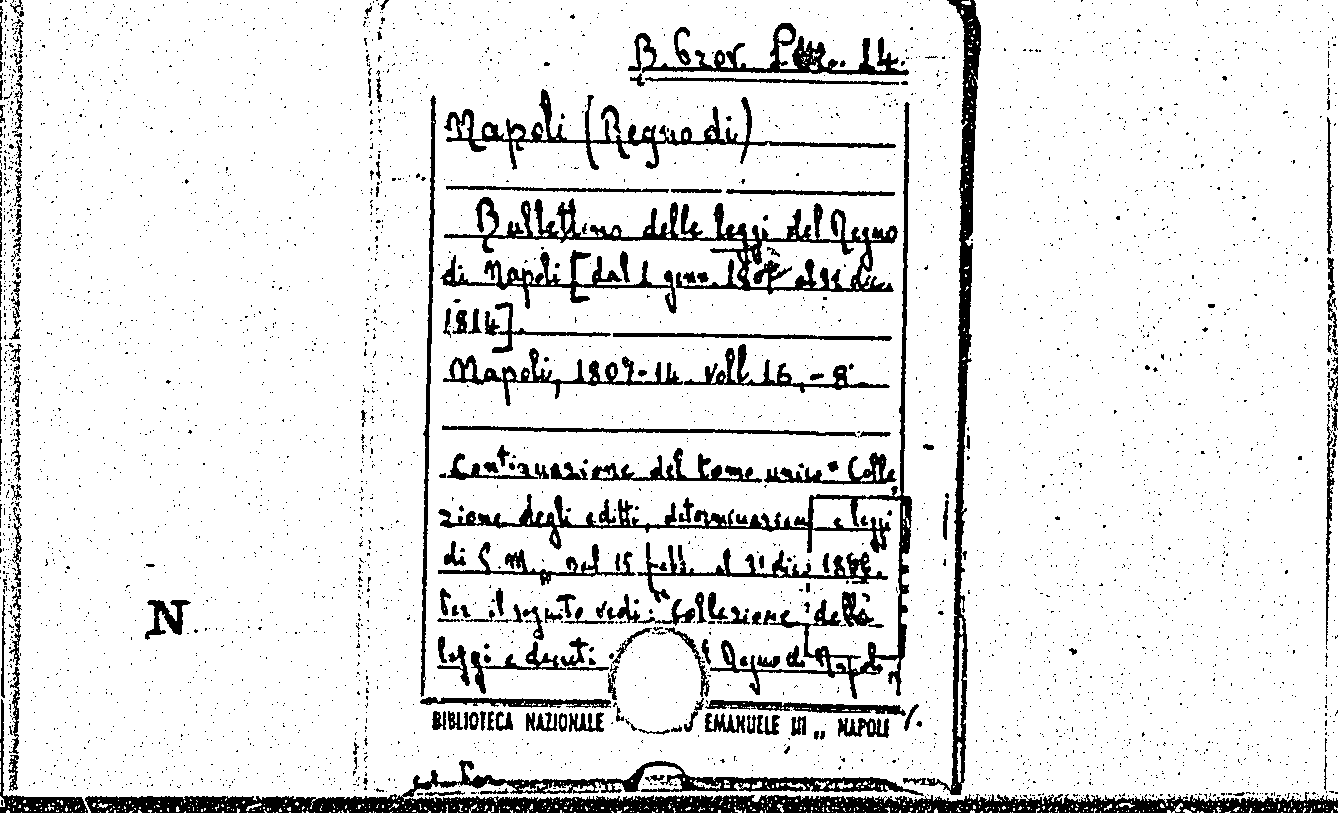 B. Prov. 14.
Napoli (Regno di)
Bullettino delle leggi del Regno
di Napoli [dal 1 genn. 1807 al 31 dic.
1814].
Napoli, 1807-14 voll. 16, - 8°
Continuazione del tomo unico "Colle
zione degli editti, determinazioni e leggi
di S. M., dal 15 febb. al 31 dic. 1806.
Per il seguito vedi: "Collezione delle
leggi e decreti Regno di Napoli"
BIBLIOTECA NAZIONALE EMANUELE III „ NAPOLI
N